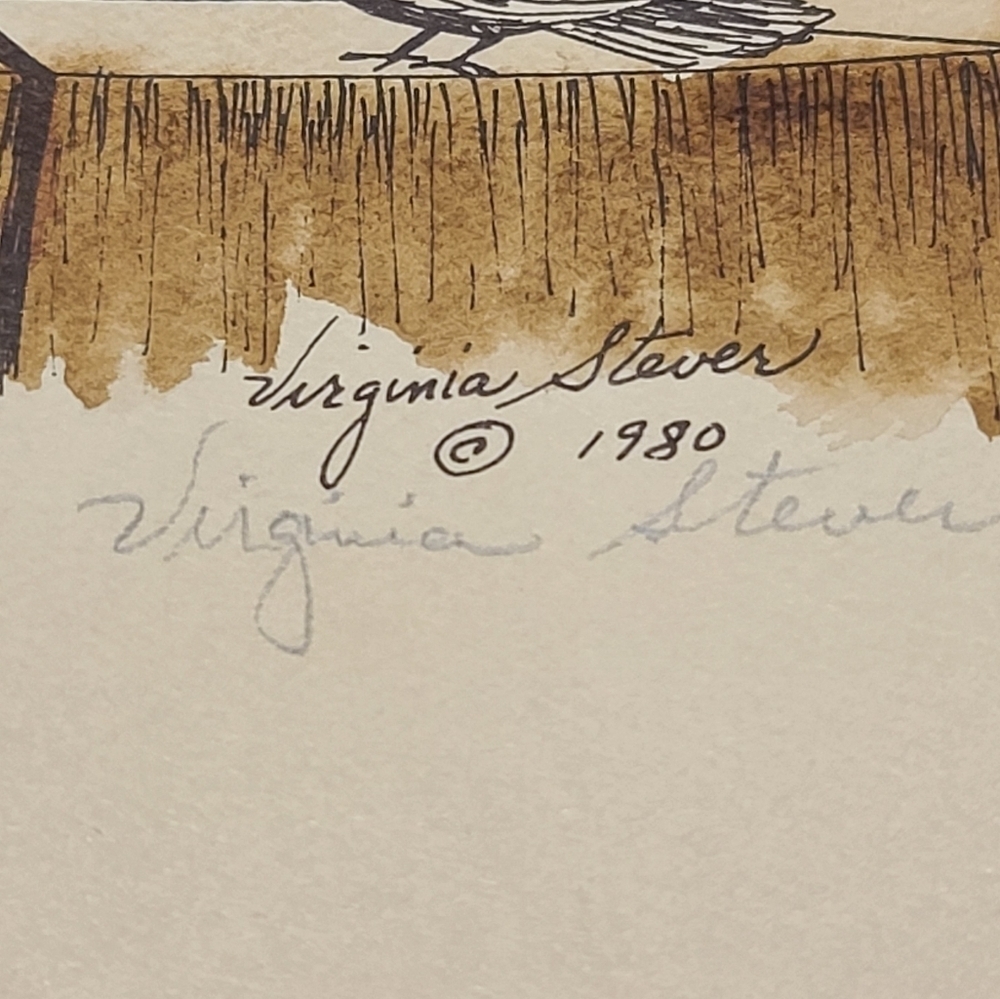 Virginia Stever
© 1980
Virginia Stever